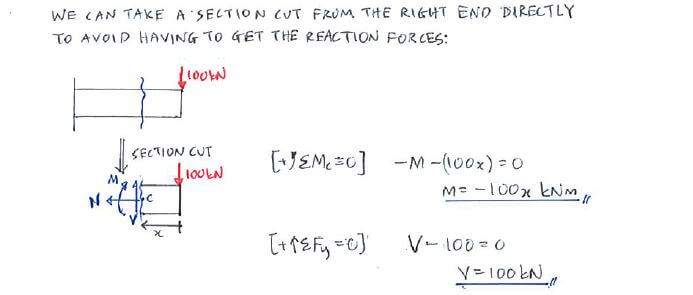 WE CAN TAKE A SECTION CUT FROM THE RIGHT END DIRECTLY
TO AVOID HAVING TO GET THE REACTION FORCES:
100kN
SECTION CUT
100kN
M
N
C
V
x
[+↺ΣMc=0] -M-(100x)=0
M= -100x kNm
[+↑ΣFy=0] V-100=0
V=100kN